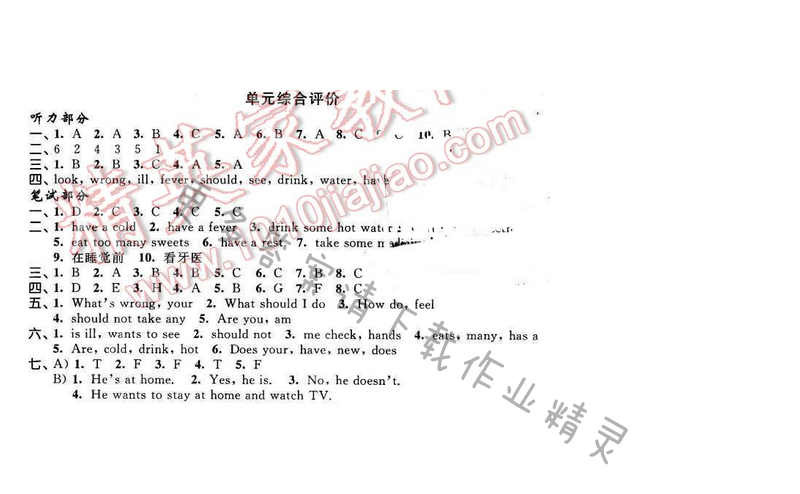 单元综合评价
听力部分
一、1. A 2. A 3. B 4. C 5. A 6. B 7. A 8. C C 10. B
二、6 2 4 3 5 1
三、1. B 2. B 3. C 4. A 5. A
四、look, wrong, ill, fever, should, see, drink, water, have
笔试部分
一、1. D 2. C 3. C 4. C 5. C
二、1. have a cold 2. have a fever 3. drink some hot water
5. eat too many sweets 6. have a rest 7. take some
9. 在睡觉前 10. 看牙医
三、1. B 2. A 3. B 4. B 5. C 6. C 7. B 8. C
四、1. D 2. E 3. H 4. A 5. G 6. F 7. B 8. C
五、1. What's wrong, your 2. What should I do 3. How do, feel
4. should not take any 5. Are you, am
六、1. is ill, wants to see 2. should not 3. me check, hands 4. eats, many, has a
5. Are, cold, drink, hot 6. Does your, have, new, does
七、A) 1. T 2. F 3. F 4. T 5. F
B) 1. He's at home. 2. Yes, he is. 3. No, he doesn't.
4. He wants to stay at home and watch TV.
精英家教
www.1010jiajiao.com
更多答案请下载作业精灵